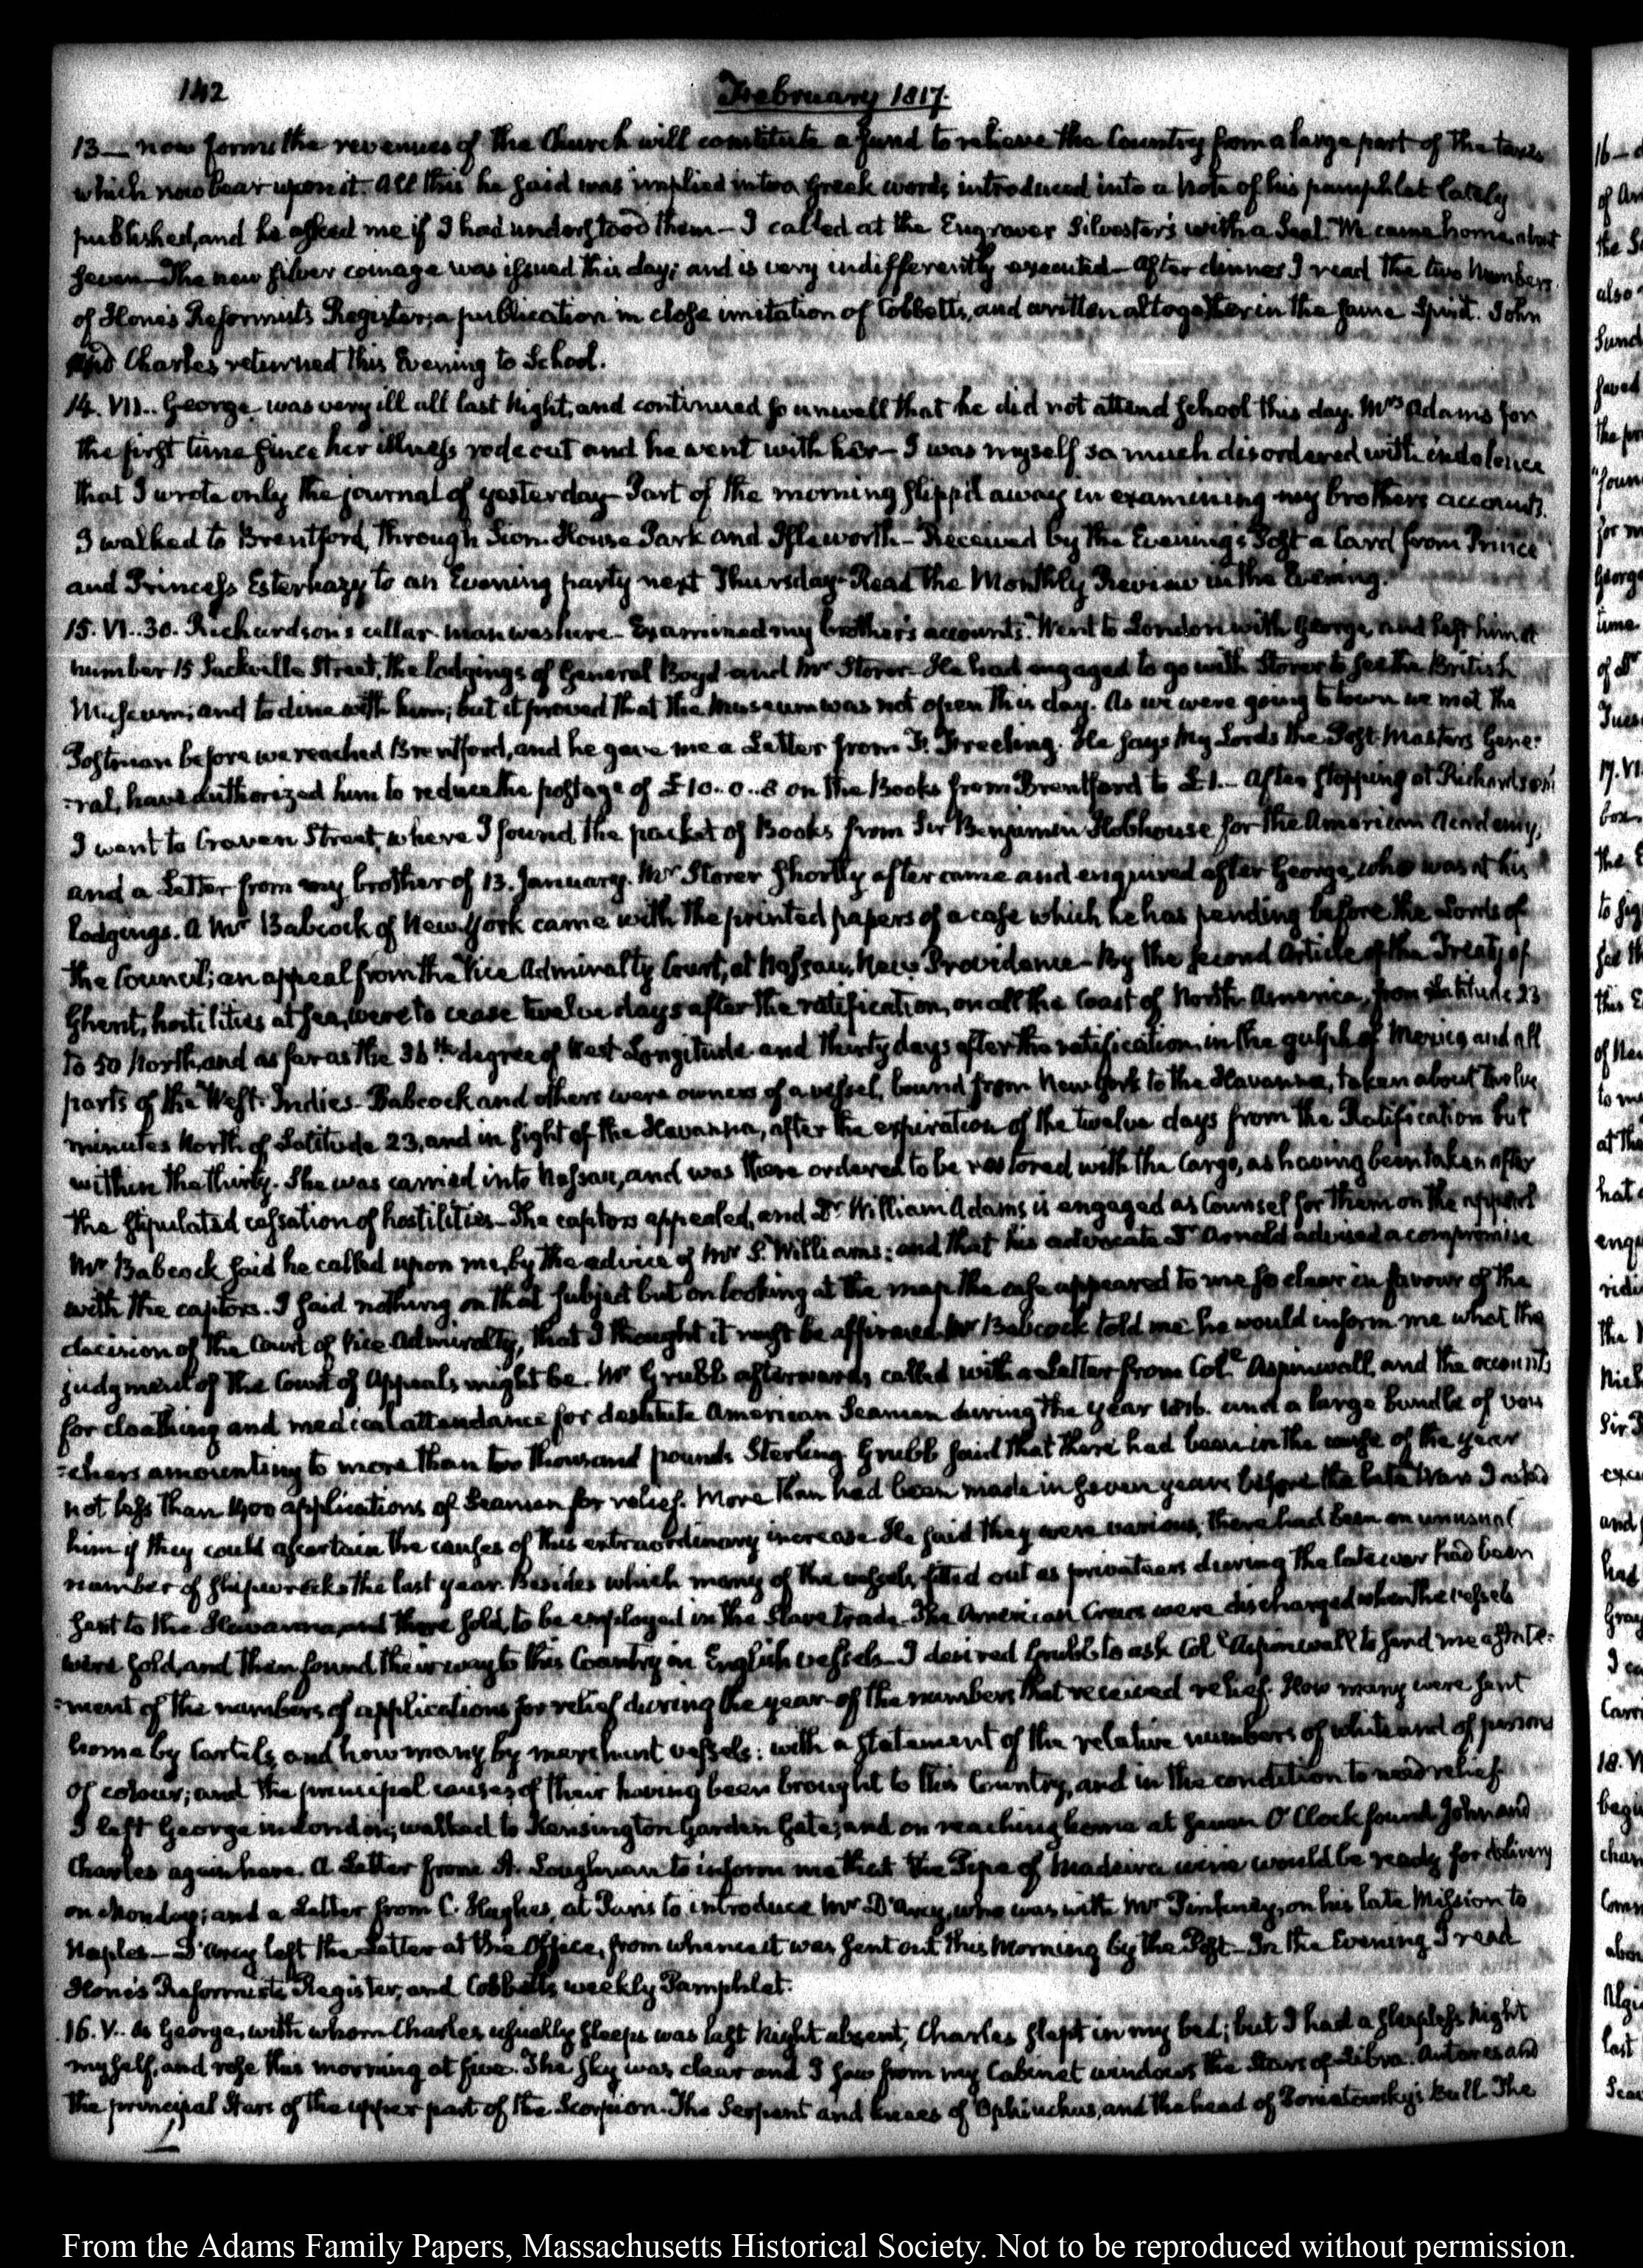 142
February 1817.
13— now forms the revenues of the Church will constitute a fund to relieve the Country from a large part of the taxes
which now bear upon it. All this he said was implied in two Greek words, introduced into a Note of his pamphlet lately
published, and he asked me if I had understood them— I called at the Engraver Silvester's with a Seal. We came home about
seven— The new silver coinage was issued this day; and is very indifferently executed— After dinner I read the two Numbers
of Hone's Reformists Register, a publication in close imitation of Cobbett's, and written altogether in the same Spirit. John
and Charles returned this Evening to School.
14. VII.. George was very ill all last Night, and continued so unwell that he did not attend school this day. Mrs Adams for
the first time since her illness rode out and he went with her— I was myself so much disordered with indolence
that I wrote only the journal of yesterday— Part of the morning slipp'd away in examining my brothers accounts.
I walked to Brentford, through Sion House Park and Isleworth— Received by the Evening's Post a Card from Prince
and Princess Esterhazy to an Evening party next Thursday— Read the Monthly Review in the Evening.
15. VI..30. Richardson's cellar-man was here— Examined my brother's accounts. Went to London with George, and left him at
number 15 Sackville Street, the lodgings of General Boyd and Mr Storer— He had engaged to go with Storer to see the British
Museum; and to dine with him; but it proved that the Museum was not open this day. As we were going to town we met the
Postman before we reached Brentford, and he gave me a Letter from F. Freeling. He says My Lords the Post-Masters Gene-
-ral, have authorized him to reduce the postage of £10..0..8 on the Books from Brentford to £1— After stopping at Richardson's
I went to Craven Street, where I found the packet of Books from Sir Benjamin Hobhouse for the American Academy,
and a Letter from my brother of 13. January. Mr Storer shortly after came and enquired after George, who was at his
Lodgings. A Mr Babcock of New-York came with the printed papers of a case which he has pending before the Lords of
the Council; an appeal from the Vice Admiralty Court, at Nassau, New Providence— By the second Article of the Treaty of
Ghent, hostilities at sea, were to cease twelve days after the ratification, on all the Coast of North America, from Latitude 23
to 50 North, and as far as the 36th degree of West Longitude and thirty days after the ratification in the gulph of Mexico, and all
parts of the West-Indies— Babcock and others were owners of a vessel, bound from New York to the Havanna, taken about twelve
minutes North of Latitude 23, and in sight of the Havanna, after the expiration of the twelve days from the Ratification but
within the thirty. She was carried into Nassau, and was there ordered to be restored with the Cargo, as having been taken after
the stipulated cessation of hostilities— The captors appealed, and Dr William Adams is engaged as Counsel for them on the appeal
Mr Babcock said he called upon me, by the advice of Mr S. Williams: and that his advocate Dr Arnold advised a compromise
with the captors. I said nothing on that subject but on looking at the map the case appeared to me so clear in favour of the
decision of the Court of Vice Admiralty, that I thought it must be affirmed. Mr Babcock told me he would inform me what the
judgment of the Court of Appeals might be. Mr Grubb afterwards, called with a Letter from Coll Aspinwall, and the accounts
for cloathing and medical attendance for destitute American Seamen during the year 1816. and a large bundle of vou
-chers amounting to more than two thousand pounds Sterling. Grubb said that there had been in the course of the year
not less than 1900 applications of Seamen for relief. More than had been made in seven years before the late War. I asked
him if they could ascertain the causes of this extraordinary increase. He said they were various, there had been an unusual
number of shipwrecks the last year. Besides which many of the vessels fitted out as privateers during the late war had been
sent to the Havanna, and there sold, to be employed in the Slave trade. The American Crews were discharged when the vessels
were sold, and then found their way to this Country in English vessels— I desired Grubb to ask Coll Aspinwall to send me a state-
-ment of the numbers of applications for relief during the year— of the numbers that received relief. How many were sent
home by Cartels, and how many by merchant vessels: with a statement of the relative numbers of white and of persons
of colour; and the principal causes of their having been brought to this Country, and in the condition to need relief.
I left George in London; walked to Kensington Garden Gate; and on reaching home at seven O'Clock found John and
Charles again here. A Letter from A. Loughnan to inform me that the Pipe of Madeira wine would be ready for delivery
on Monday; and a Letter from C. Hughes, at Paris to introduce Mr D'Arcy, who was with Mr Pinkney, on his late Mission to
Naples— D'Arcy left the Letter at the Office, from whence it was sent out this Morning by the Post— In the Evening I read
Hone's Reformists Register, and Cobbetts weekly Pamphlet.
16. V.. As George, with whom Charles usually sleeps was last Night absent, Charles slept in my bed; but I had a sleepless Night
myself, and rose this morning at five. The sky was clear and I saw from my Cabinet windows the Stars of Libra. Antares and
the principal Stars of the upper part of the Scorpion. The Serpent and knees of Ophiuchus, and the head of Poniatowsky's Bull. The
From the Adams Family Papers, Massachusetts Historical Society. Not to be reproduced without permission.